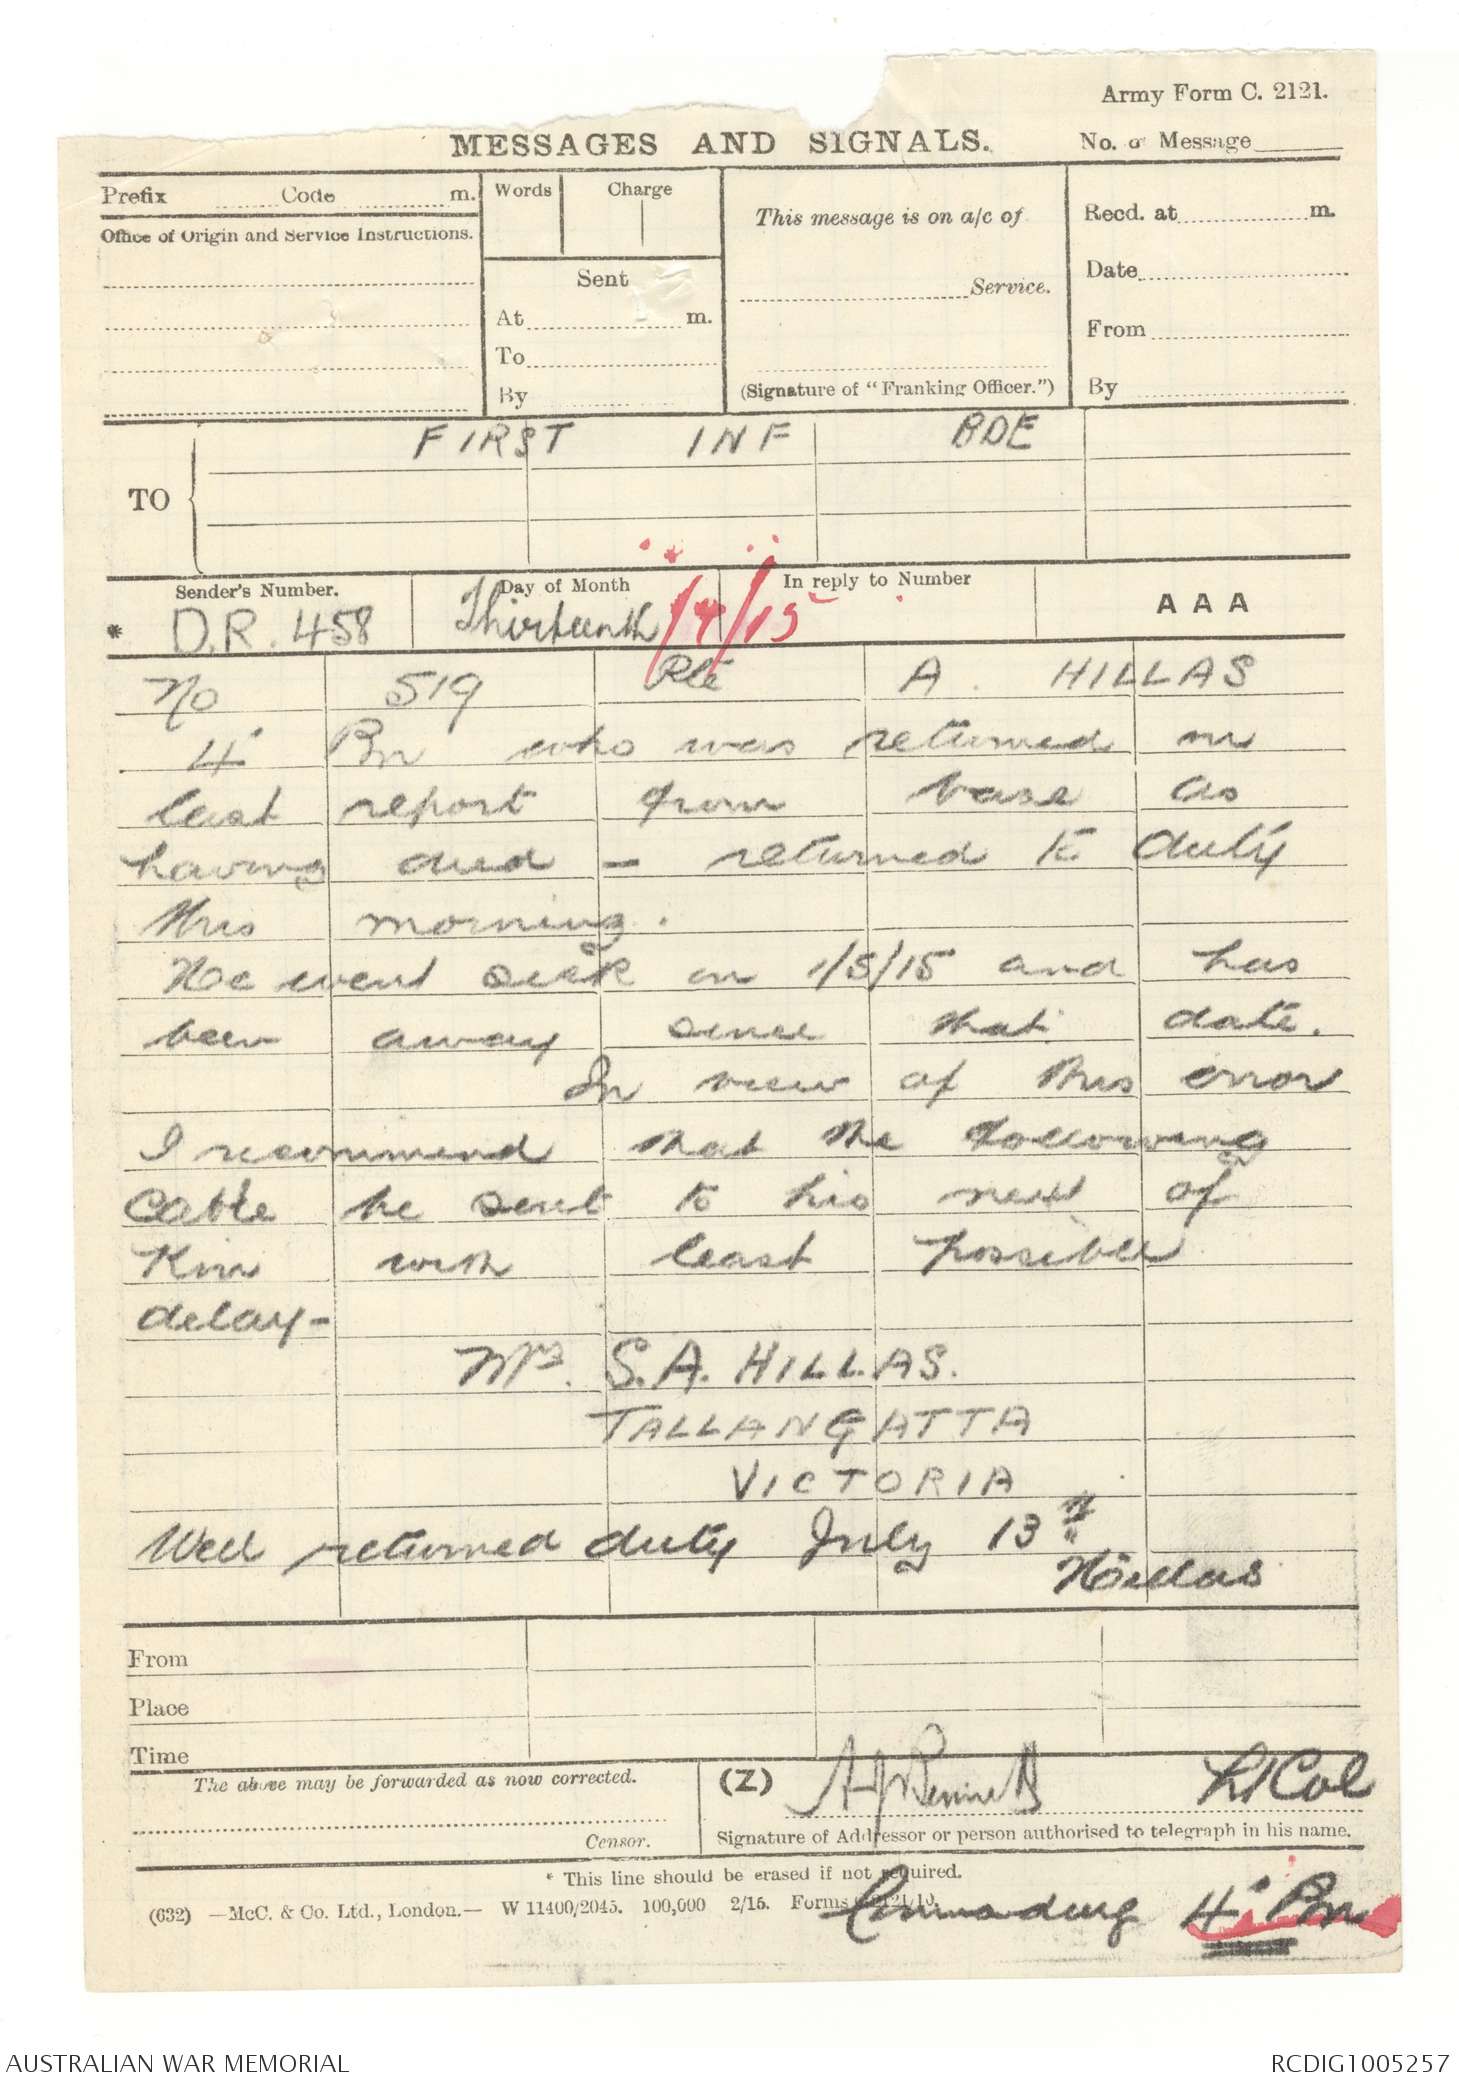 Army Form C. 2121.
MESSAGES AND SIGNALS. No. of Message
Prefix Code m. Words Charge This message is on a/c of Recd. at m.
Office of Origin and Service Instructions.
Sent Service. Date
At m. From
To
By (Signature of "Franking Officer.") By
TO FIRST INF BDE
Sender's Number. Day of Month In reply to Number AAA
* D.R. 458 Thirteenth /15
No 519 Pte A. HILLAS
4 Bn who was returned in
last report from base as
having died - returned to duty
this morning.
He went sick on 1/5/15 and has
been away since that date.
In view of this error
I recommend that the following
cable be sent to his next of
Kin with least possible
delay-
Mrs. S.A. HILLAS.
TALLANGATTA
VICTORIA
Well returned duty July 13th
Hillas
From
Place
Time
The above may be forwarded as now corrected. (Z) Lt Col
Censor. Signature of Addressor or person authorised to telegraph in his name.
* This line should be erased if not required.
(632) —McC. & Co. Ltd., London.— W 11400/2045. 100,000 2/15. Forms
Commanding 4 Bn
AUSTRALIAN WAR MEMORIAL RCDIG1005257